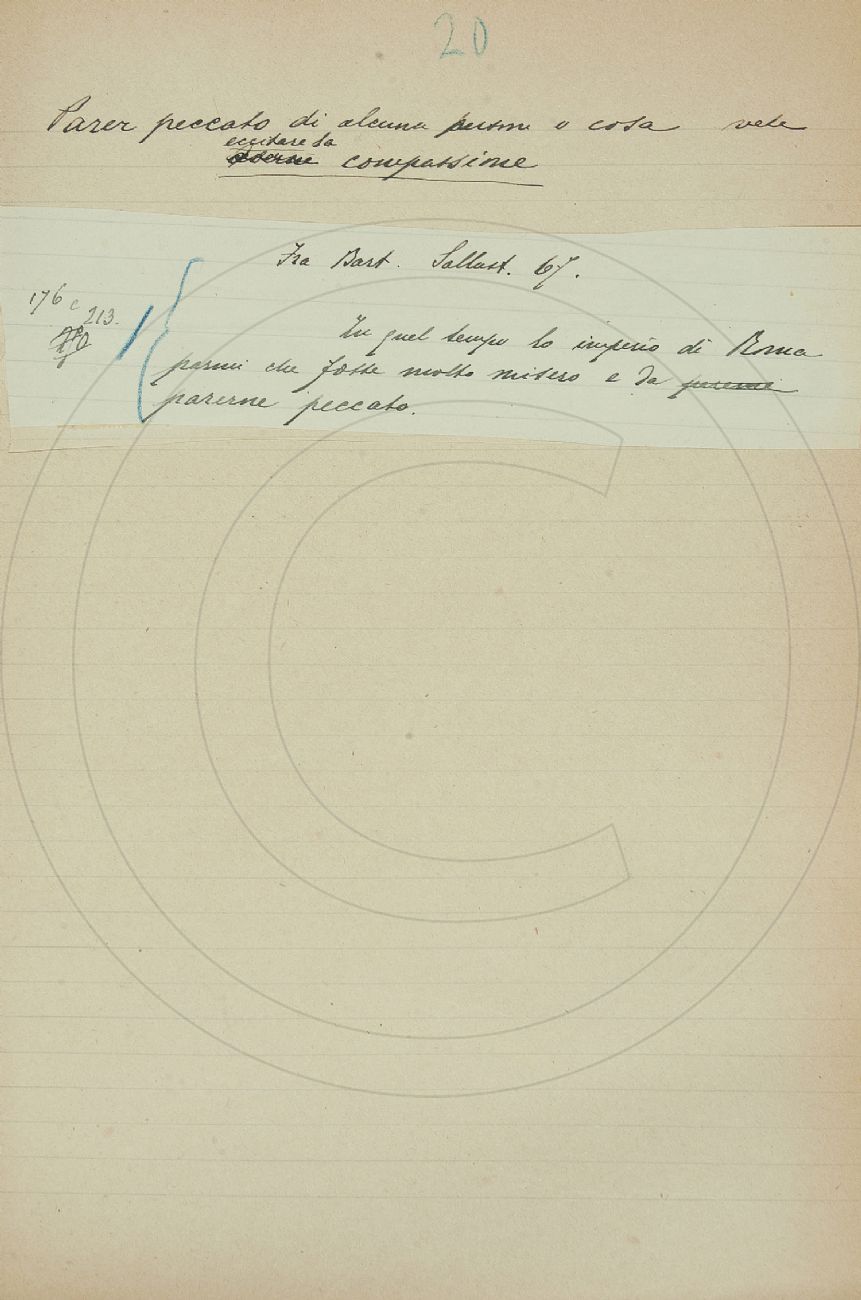 20
Parer peccato di alcuna o cosa vale
eccitare la
compassione
Fra Bart. Sallust. 67.
176 c 213.
In quel tempo lo imperio di Roma
parmi che fosse molto misero e da
parerne peccato.